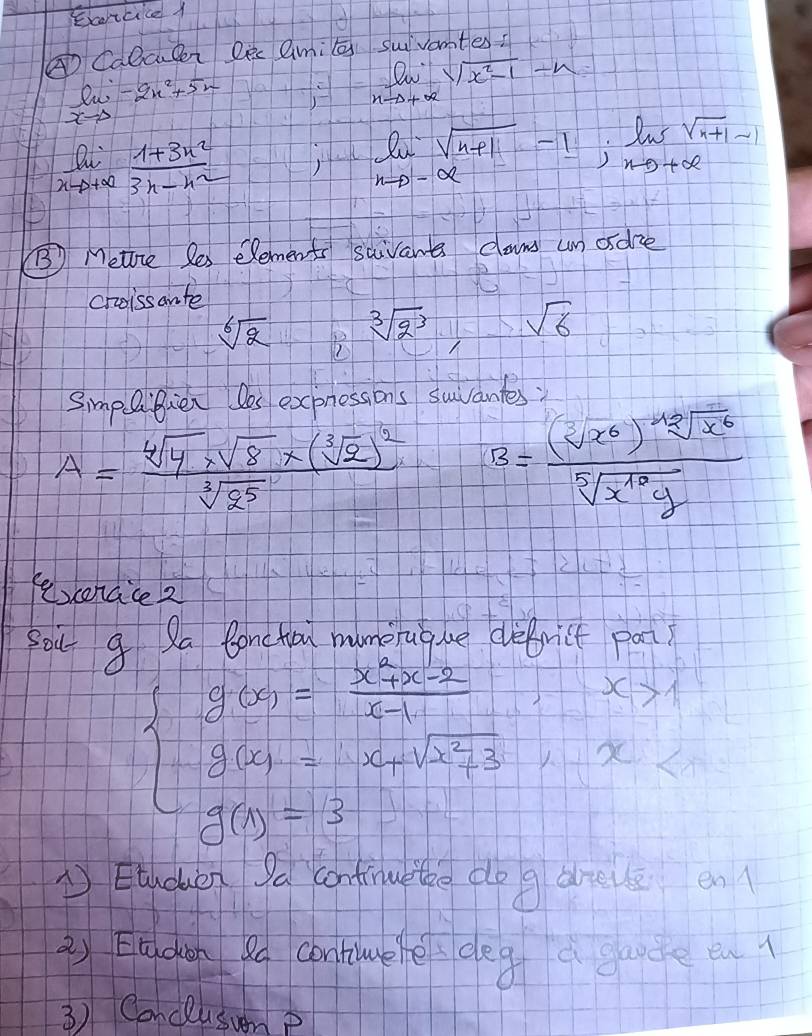 Exercice 1
A) Calculer les limites suivantes :
lim -2x²+5x ; lim √(x²-1) - x
x→ x→+∞
lim (1+3x²)/(3x-x²) ; lim √(x+1) - 1 ; lim √(x+1) - 1
x→+∞ x→-∞ x→+∞
B) Mettre les élements suivants dans un ordre
croissante
⁶√2 ; ³√2³ , √6
Simplifier les expressions suivantes :
A = (⁴√4 × √8 × (³√2)²)/(³√2⁵) B = ((³√x⁶) ¹²√x⁶)/(⁵√(x¹⁰y))
Exercice 2
Soit g la fonction numérique définit par :
g(x) = (x²+x-2)/(x-1) , x > 1
g(x) = x+√(x²+3) , x <
g(1) = 3
1) Etudier la continuetée de g droite en 1
2) Etudier la continueté de g à gauche en 1
3) Conclusion ?